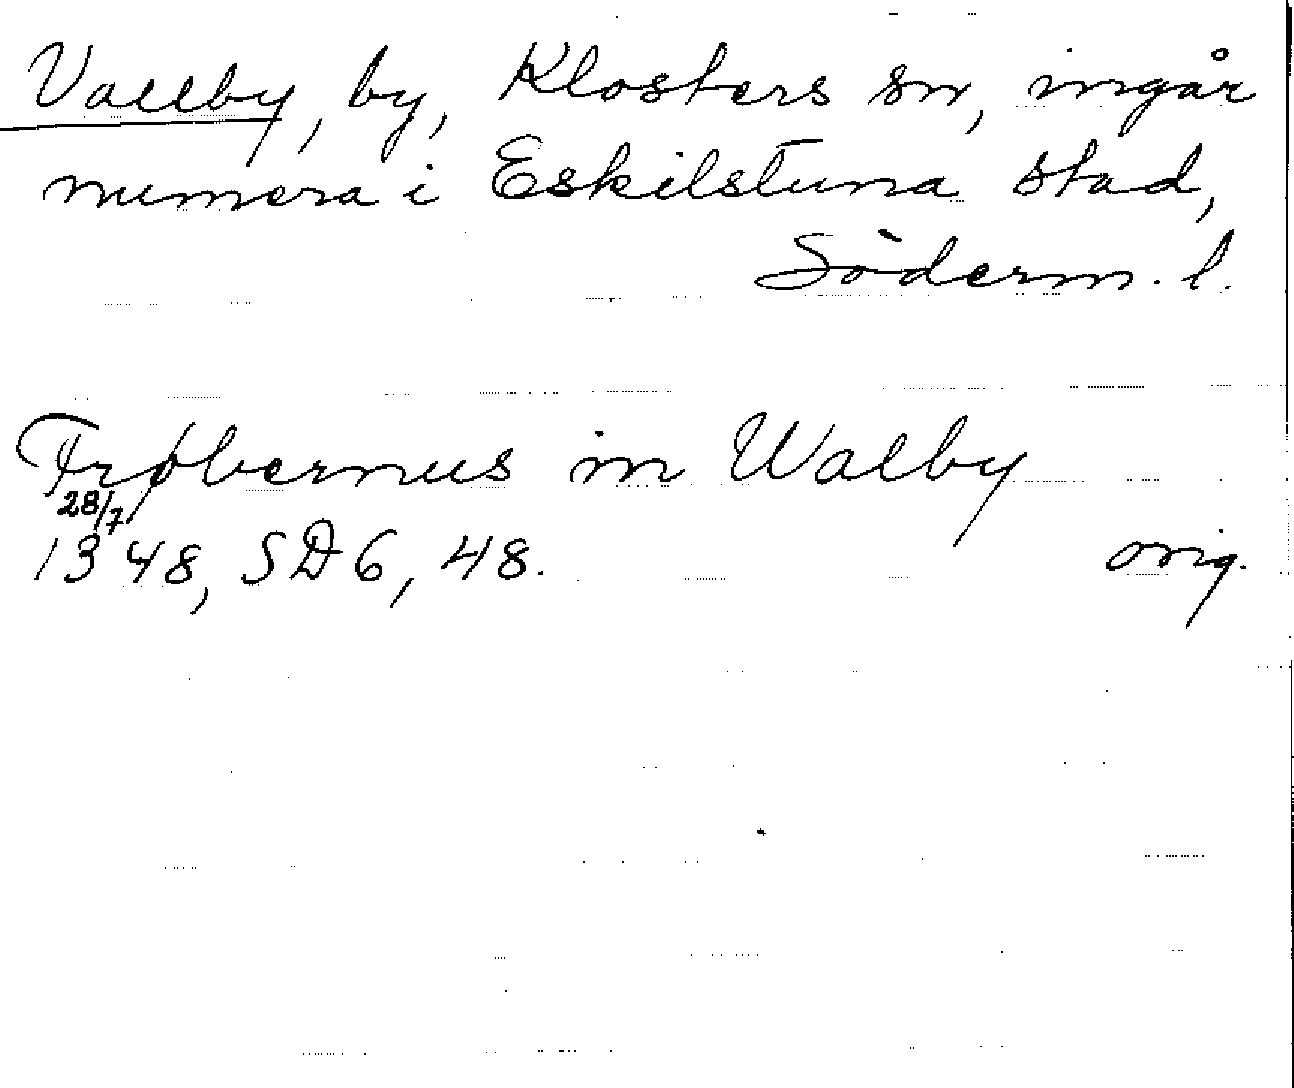 Vallby, by, Klosters sn, ingår
numera i Eskilstuna stad,
Söderm. l.
Frøbernus in Walby
28/7
1348, SD 6, 48. orig.